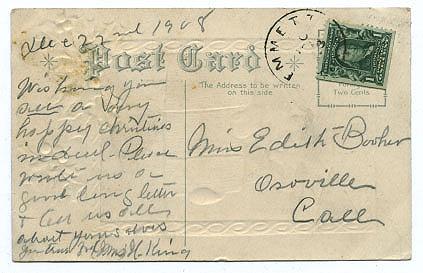 Dec 22nd 1908
Post Card
The Address to be written
on this side
EMMETT
Two Cents
Wishing you
all a very
happy christmas
indeed. Please
write us a
good long letter
& tell us all
about yourselves
King
Miss Edith Booher
Osoville
Call